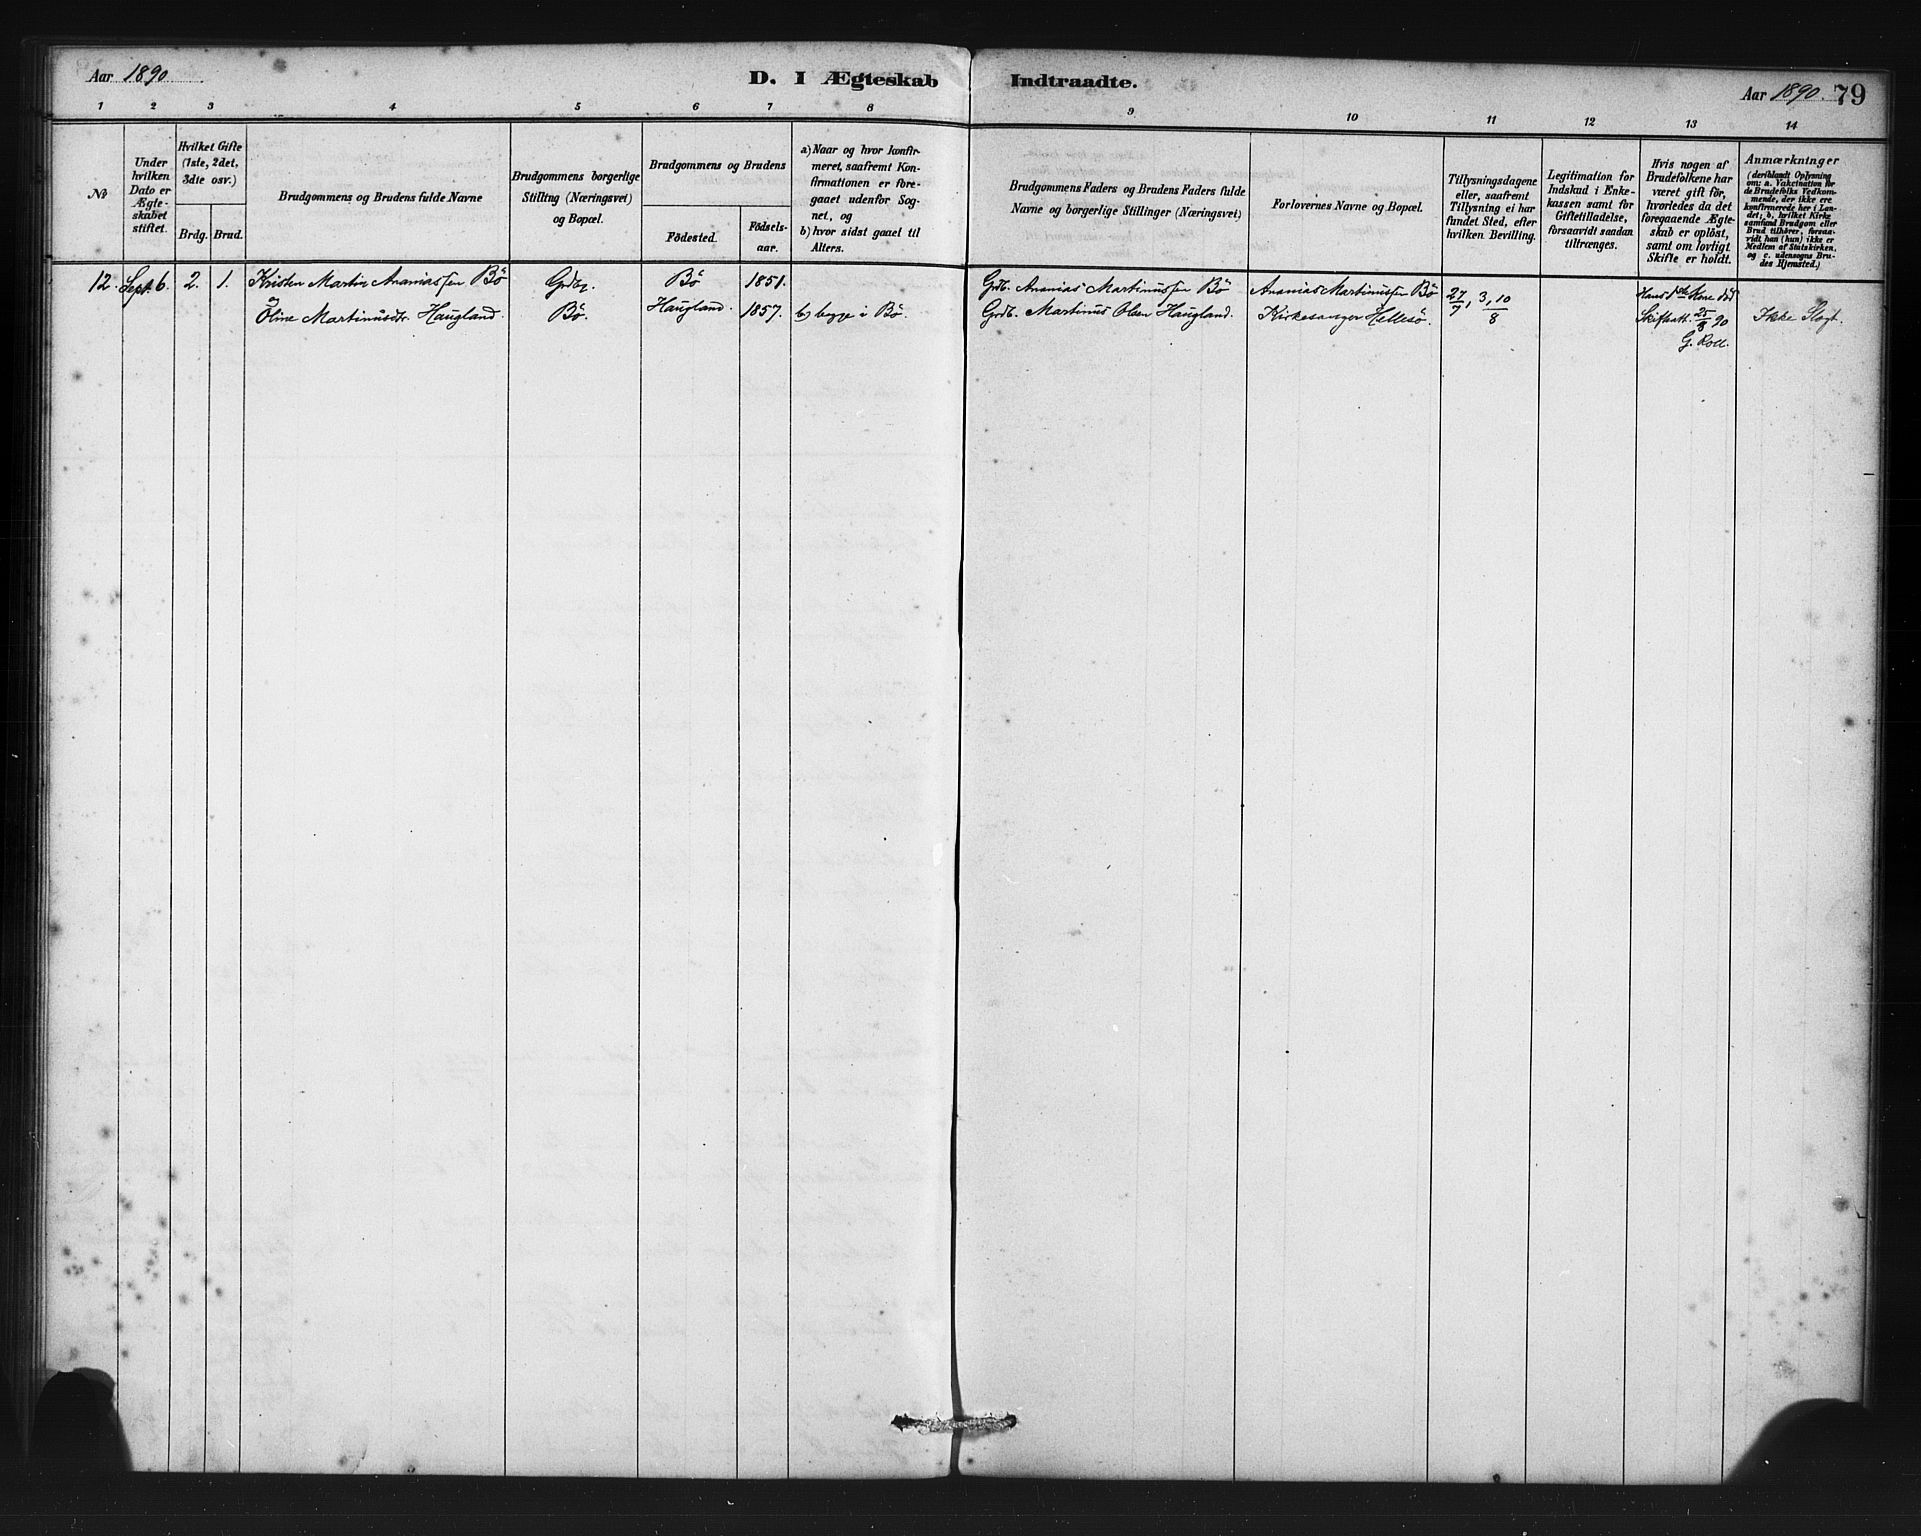 Aar 1890
D. I Ægteskab Indtraadte.
Aar 1890. 79
1 2 3 4 5 6 7 8 9 10 11 12 13 14
No
Under hvilken Dato er Ægte-skabet stiftet.
Hvilket Gifte (1ste, 2det, 3die osv.)
Brdg. Brud.
Brudgommens og Brudens fulde Navne
Brudgommens borgerlige Stilling (Næringsvei) og Bopæl.
Brudgommens og Brudens
Födested. Födsels-aar.
a) Naar og hvor konfir-
meret, saafremt Kon-
firmationen er fore-
gaaet udenfor Sog-
net, og
b) hvor sidst gaaet til
Alters.
Brudgommens Faders og Brudens Faders fulde
Navne og borgerlige Stillinger (Næringsvei)
Forlovernes Navne og Bopæl.
Tillysningsdagene
eller, saafremt
Tillysning ei har
fundet Sted, efter
hvilken Bevilling.
Legitimation for
Indskud i Enke-
kassen samt for
Giftetilladelse,
forsaavidt saadan
tiltrænges.
Hvis nogen af
Brudefolkene har
været gift för,
hvorledes da det
foregaaende Ægte-
skab er oplöst,
samt om lovligt
Skifte er holdt.
Anmærkninger
(deriblandt Oplysning
om: a. Vakcination for
de Brudefolks Vedkom-
mende, der ikke ere
konfirmerede her i Lan-
det; b, hvilket Kirke
samfund Brudgom eller
Brud tilhörer, forsaa-
vidt han (hun) ikke er
Medlem af Statskirken,
og c. udensogns Bru-
des Hjemsted.)
12. Sept. 6. 2. 1. Kristen Martin Ananiassen Bö Grdbr. Bö 1851. Grdb. Ananias Martinussen Bö Ananias Martinussen Bö 27/7, 3, 10/8 Hans 1ste Kone död
Oline Martinusdr. Haugland. Bö. Haugland. 1857. b) begge i Bö. Grdb. Martinus Olsen Haugland. Kirkesanger Hellesö. Skifteatt. 25/8 90 Ikke Slegt.
G. Roll.